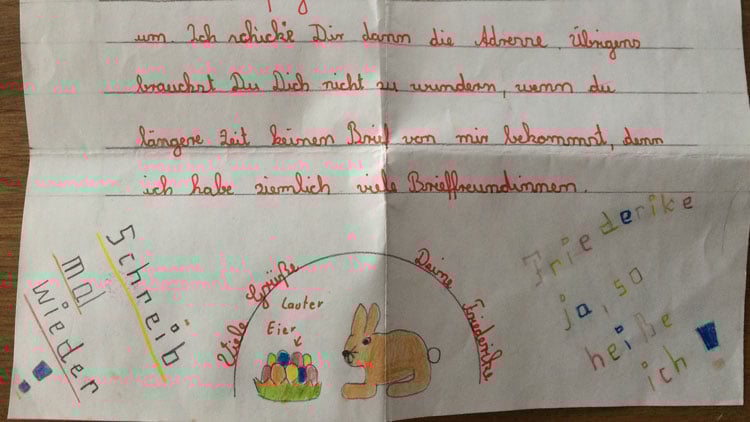 um. Ich schicke Dir dann die Adresse. Übrigens
brauchst Du Dich nicht zu wundern, wenn du
längere Zeit keinen Brief von mir bekommst, denn
ich habe ziemlich viele Brieffreundinnen.
Schreib
mal
wieder!
Viele Grüße
Deine Friederike
Lauter
Eier
Friederike
ja, so
heiße
ich!